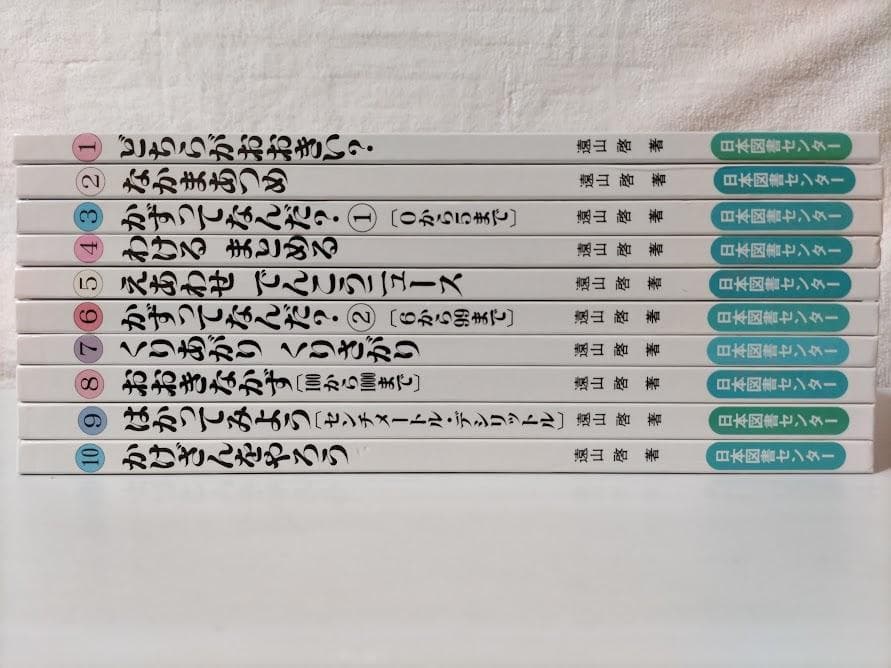 1 どちらがおおきい? 遠山 啓 著 日本図書センター
2 なかまあつめ 遠山 啓 著 日本図書センター
3 かずってなんだ? ① [0から5まで] 遠山 啓 著 日本図書センター
4 わける まとめる 遠山 啓 著 日本図書センター
5 えあわせ でんこうニュース 遠山 啓 著 日本図書センター
6 かずってなんだ? ② [6から99まで] 遠山 啓 著 日本図書センター
7 くりあがり くりさがり 遠山 啓 著 日本図書センター
8 おおきなかず [100から1000まで] 遠山 啓 著 日本図書センター
9 はかってみよう [センチメートル・デシリットル] 遠山 啓 著 日本図書センター
10 かけざんをやろう 遠山 啓 著 日本図書センター